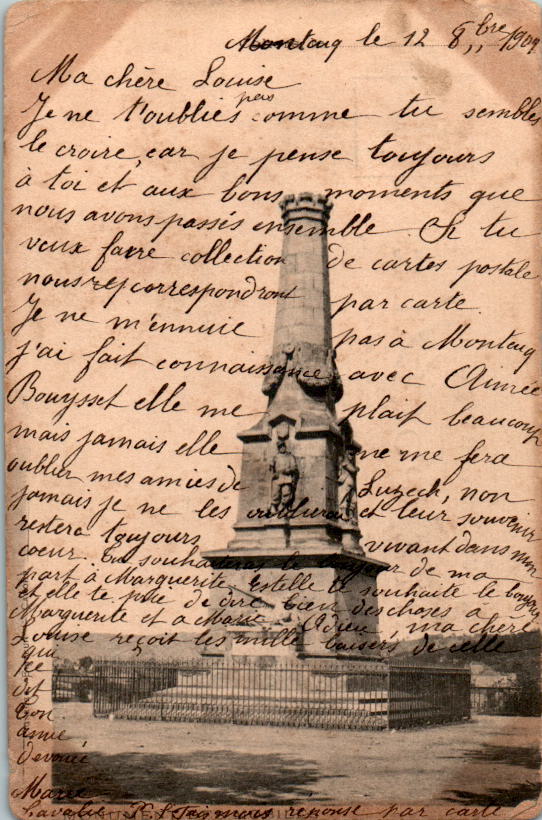 Montcuq le 12 8bre 1904
Ma chère Louise
Je ne t'oubliés pas comme tu sembles
le croire, car je pense toujours
à toi et aux bons moments que
nous avons passés ensemble. Si tu
veux faire collection de cartes postale
nous correspondront par carte.
Je ne m'ennuie pas à Montcuq
j'ai fait connaissance avec Aimée
Bouysset elle me plait beaucoup
mais jamais elle ne me fera
oublier mes amies de Luzech, non
jamais je ne les oublierai et leur souvenir
restera toujours vivant dans mon
coeur. Tu souhaiteras le bonjour de ma
part à Marguerite. Estelle te souhaite le bonjour
et elle te prie de dire bien des choses à
Marguerite et à Marie. Adieu, ma chère
Louise reçoit les mille baisers de celle
qui
se
dit
ton
amie
dévouée
Marie
P.S. Fais moi réponse par carte